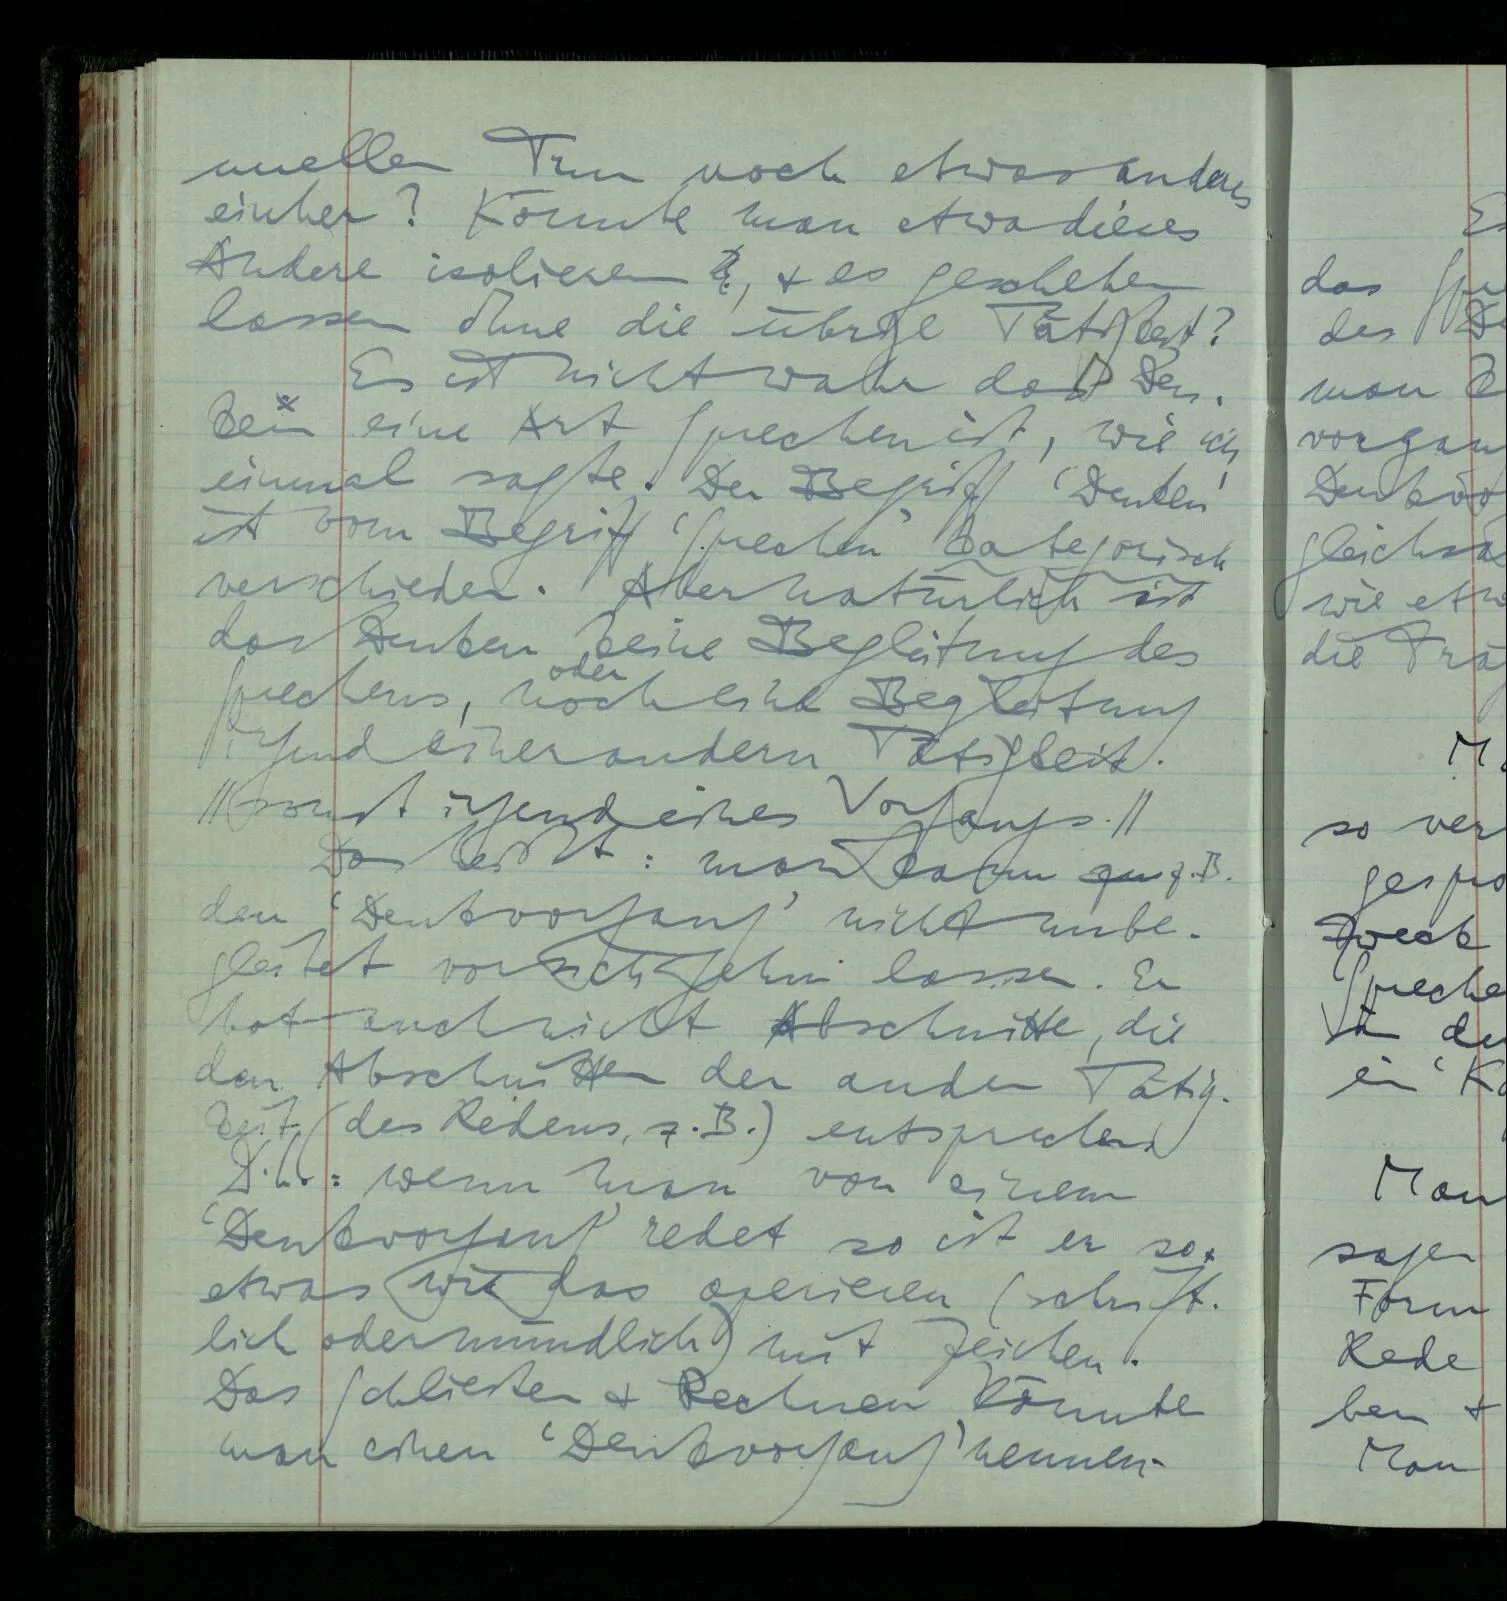 nuellen Tun noch etwas anderes
einher? Könnte man etwa dieses
Andere isolieren, + es geschehen
lassen ohne die übrige Tätigkeit?
Es ist nicht wahr daß Den-
ken eine Art Sprechen ist, wie ich
einmal sagte. Der Begriff ‘Denken’
ist vom Begriff ‘Sprechen’ kategorisch
verschieden. Aber natürlich ist
das Denken keine Begleitung des
Sprechens, oder noch eine Begleitung
irgend einer andern Tätigkeit.
// sonst irgend eines Vorgangs. //
Das heißt: man kann z.B.
den ‘Denkvorgang’ nicht unbe-
gleitet vor sich gehn lassen. Er
hat auch nicht Abschnitte, die
den Abschnitten der andern Tätig-
keit (des Redens, z.B.) entsprechen
D.h.: wenn man von einem
‘Denkvorgang’ redet so ist er so
etwas wie das operieren (schrift-
lich oder mündlich) mit Zeichen.
Das Schließen + Rechnen könnte
man einen ‘Denkvorgang’ nennen.
das
des
man
vorgan
gleichsa
wie etw
die
so ver
gespro
Zweck
Spreche
Man
sagen
Form
Rede
ben +
Man